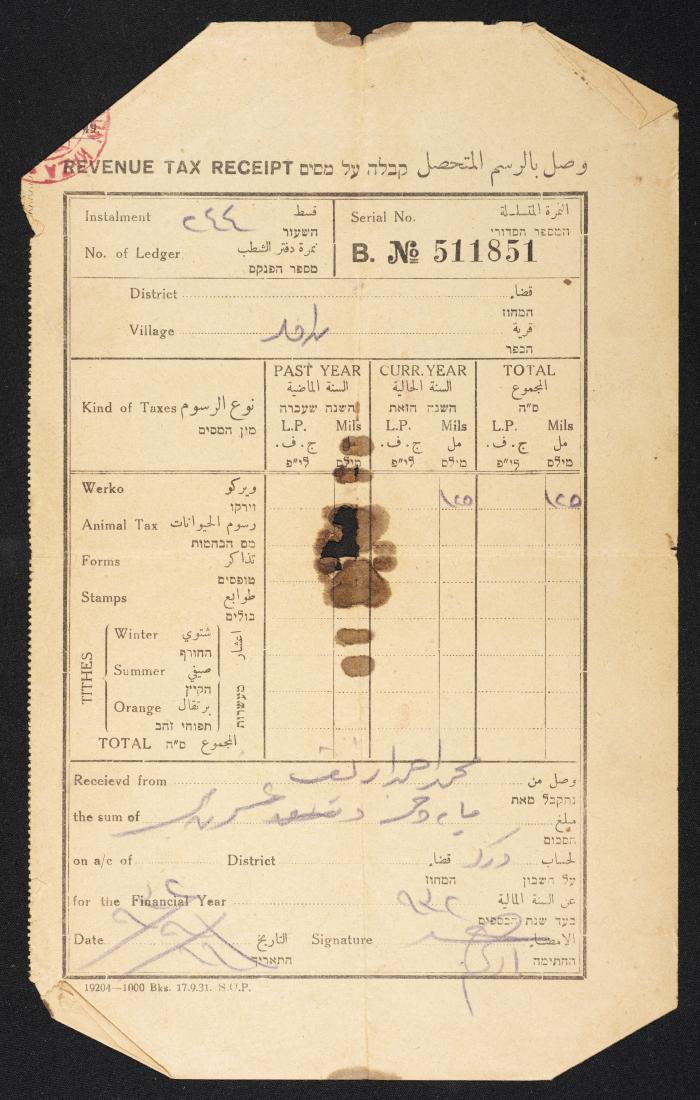 REVENUE TAX RECEIPT קבלה על מסים وصل بالرسم المتحصل
Instalment ٢٤٤ قسط
השעור
No. of Ledger نمرة دفتر الشطب
מספר הפנקס
Serial No. النمرة المتسلسلة
המספר הסדורי
B. № 511851
District قضاء
המחוז
Village قرية
הכפר
Kind of Taxes نوع الرسوم
מין המסים
PAST YEAR CURR. YEAR TOTAL
السنة الماضية السنة الحالية المجموع
השנה שעברה השנה הזאת ס"ה
L.P. Mils L.P. Mils L.P. Mils
ج.ف. مل ج.ف. مل ج.ف. مل
לי"פ מילס לי"פ מילס לי"פ מילס
Werko ويركو ١٢٥ ١٢٥
וירקו
Animal Tax رسوم الحيوانات
מס הבהמות
Forms تذاكر
טופסים
Stamps طوابع
בולים
TITHES اعشار מעשרות
Winter شتوي
החורף
Summer صيفي
הקיץ
Orange برتقال
תפוחי זהב
TOTAL ס"ה المجموع
Receievd from محمد احمد وصل من
נתקבל מאת
the sum of مبلغ
הסכום
on a/c of District قضاء لحساب
המחוז על חשבון
for the Financial Year ٩٣٢ عن السنة المالية
בעד שנת הכספים
Date التاريخ Signature الامضاء
התאריך החתימה
19204—1000 Bks. 17.9.31. S.O.P.